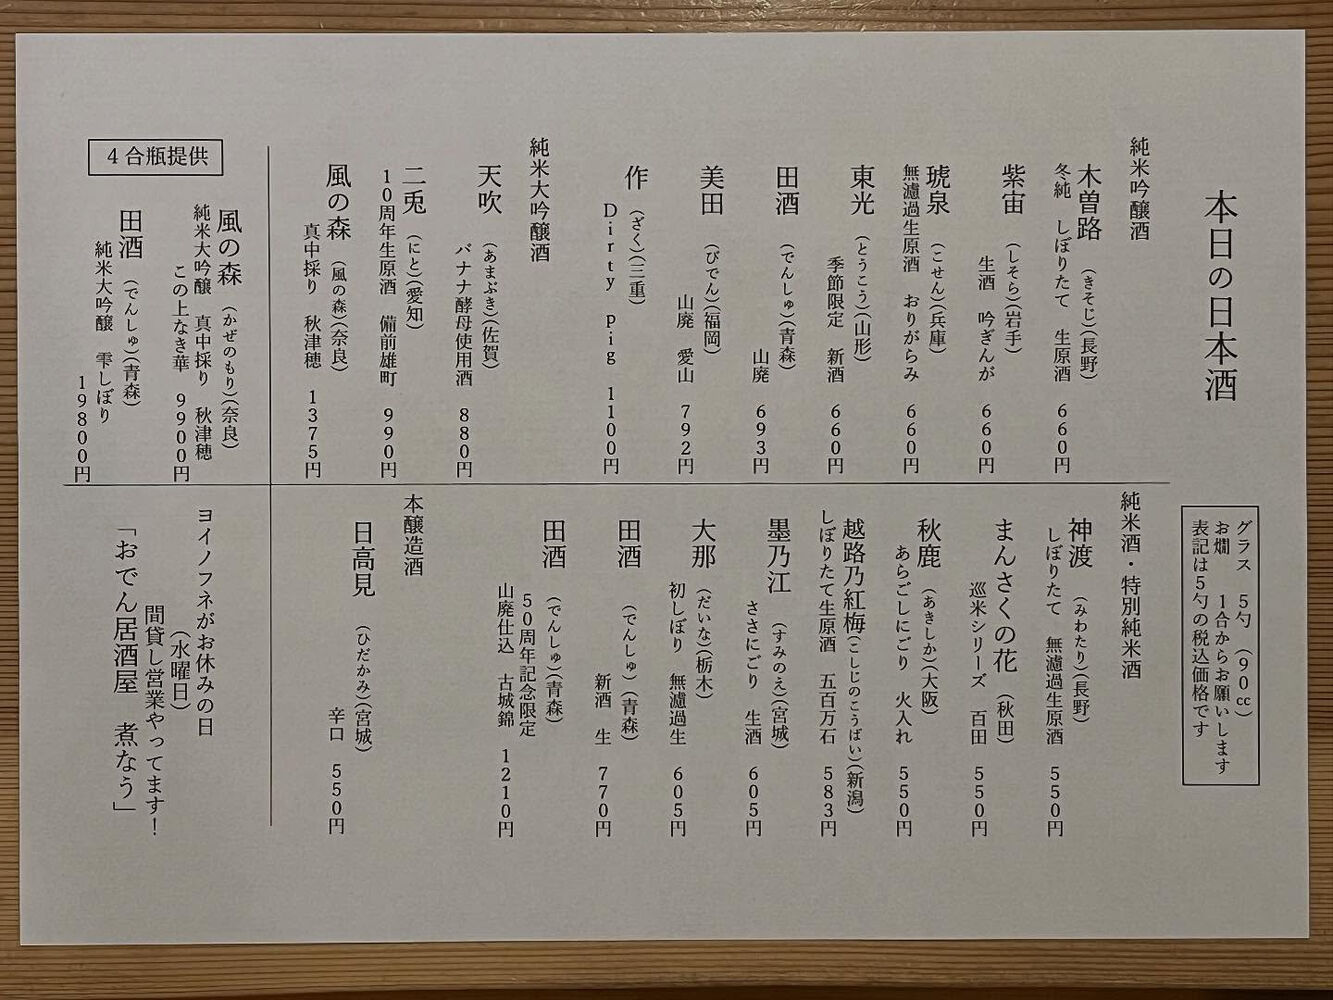 本日の日本酒
グラス　5勺　(90cc)
お燗　1合からお願いします
表記は5勺の税込価格です
純米吟醸酒
木曽路　(きそじ)(長野)
冬純　しぼりたて　生原酒　660円
紫宙　(しそら)(岩手)
生酒　吟ぎんが　660円
琥泉　(こせん)(兵庫)
無濾過生原酒　おりがらみ　660円
東光　(とうこう)(山形)
季節限定　新酒　660円
田酒　(でんしゅ)(青森)
山廃　693円
美田　(びでん)(福岡)
山廃　愛山　792円
作　(ざく)(三重)
Dirty pig　1100円
純米大吟醸酒
天吹　(あまぶき)(佐賀)
バナナ酵母使用酒　880円
二兎　(にと)(愛知)
10周年生原酒　備前雄町　990円
風の森　(風の森)(奈良)
真中採り　秋津穂　1375円
純米酒・特別純米酒
神渡　(みわたり)(長野)
しぼりたて　無濾過生原酒　550円
まんさくの花　(秋田)
巡米シリーズ　百田　550円
秋鹿　(あきしか)(大阪)
あらごしにごり　火入れ　550円
越路乃紅梅(こしじのこうばい)(新潟)
しぼりたて生原酒　五百万石　583円
墨乃江　(すみのえ)(宮城)
ささにごり　生酒　605円
大那　(だいな)(栃木)
初しぼり　無濾過生　605円
田酒　(でんしゅ)(青森)
新酒　生　770円
田酒　(でんしゅ)(青森)
50周年記念限定
山廃仕込　古城錦　1210円
本醸造酒
日高見　(ひだかみ)(宮城)
辛口　550円
4合瓶提供
風の森　(かぜのもり)(奈良)
純米大吟醸　真中採り　秋津穂
この上なき華　9900円
田酒　(でんしゅ)(青森)
純米大吟醸　雫しぼり
19800円
ヨイノフネがお休みの日
(水曜日)
間貸し営業やってます！
「おでん居酒屋　煮なう」